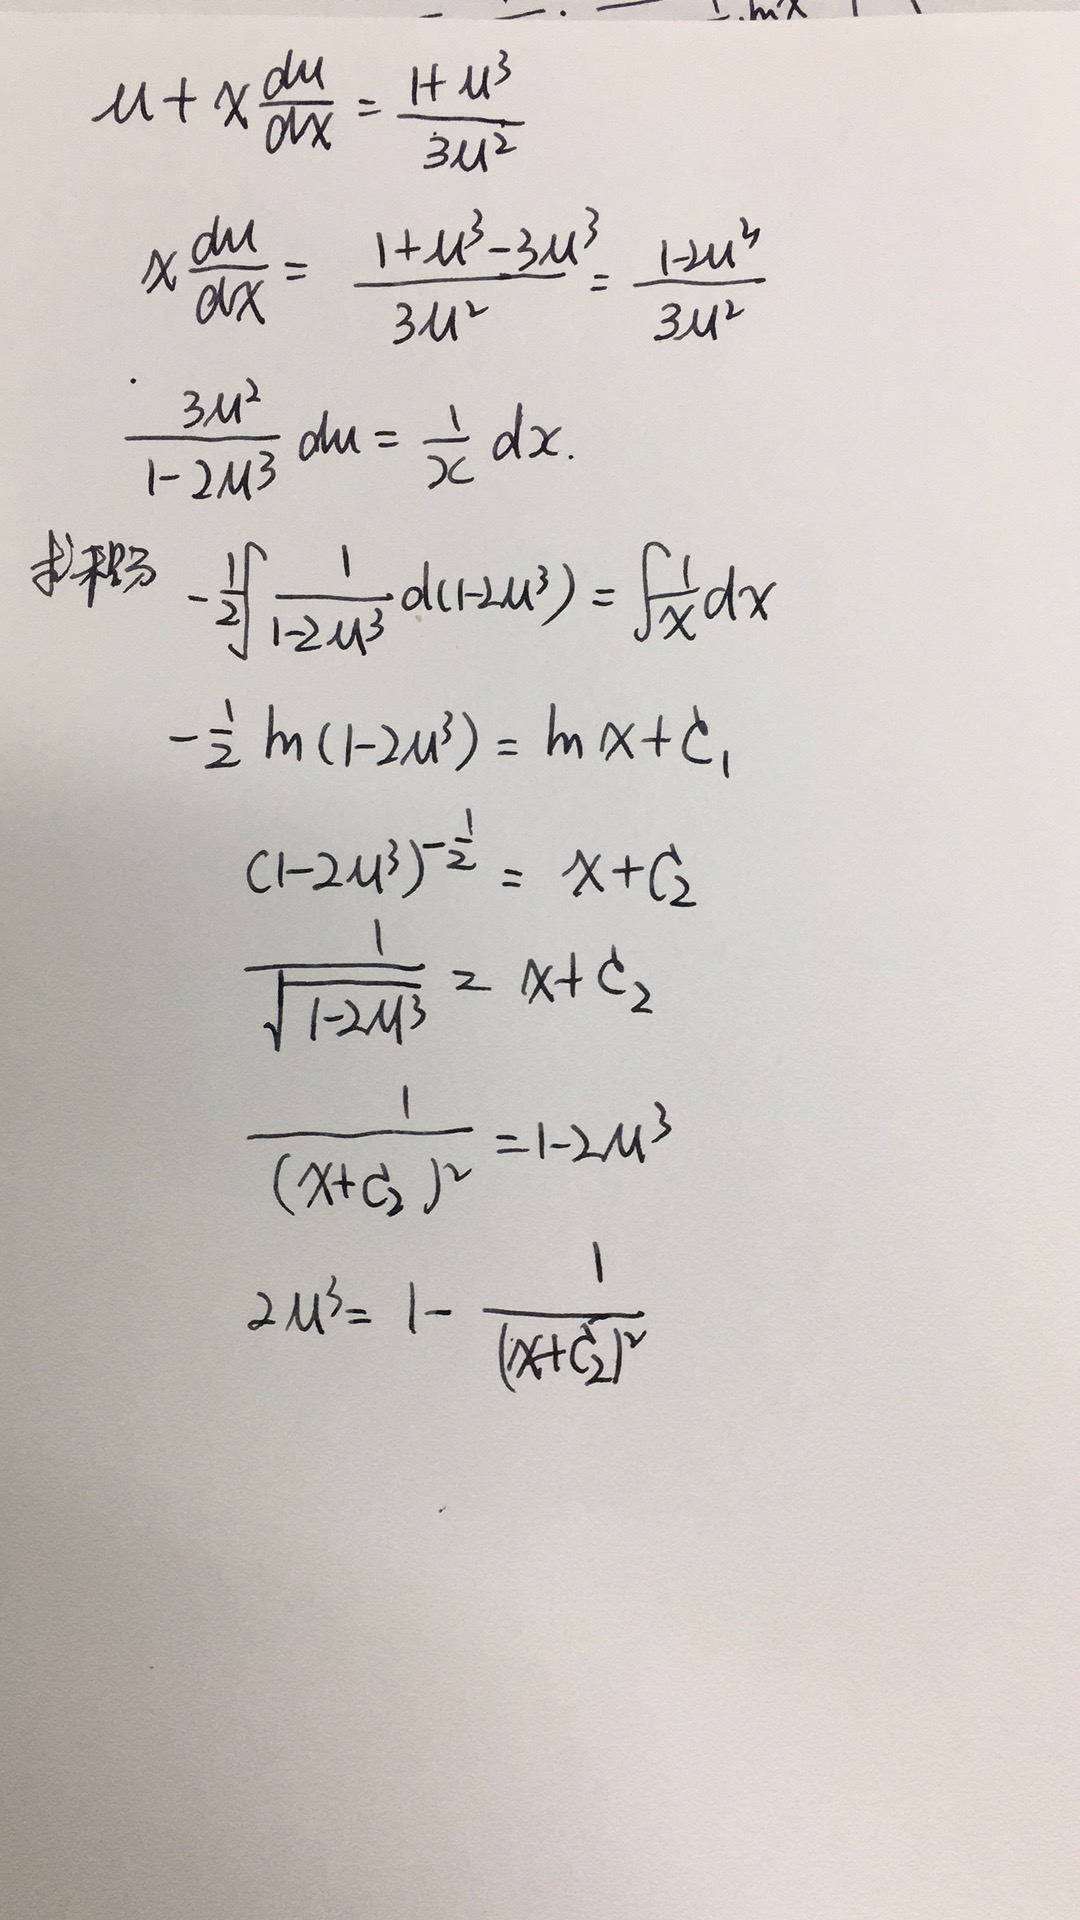 u + x du/dx = (1+u³)/(3u²)
x du/dx = (1+u³-3u³)/(3u²) = (1-2u³)/(3u²)
3u²/(1-2u³) du = 1/x dx.
求积分 -1/2 ∫ 1/(1-2u³) d(1-2u³) = ∫ 1/x dx
-1/2 ln(1-2u³) = ln x + C₁
(1-2u³)^(-1/2) = x + C₂
1/√(1-2u³) = x + C₂
1/(x+C₂)² = 1-2u³
2u³ = 1 - 1/(x+C₂)²